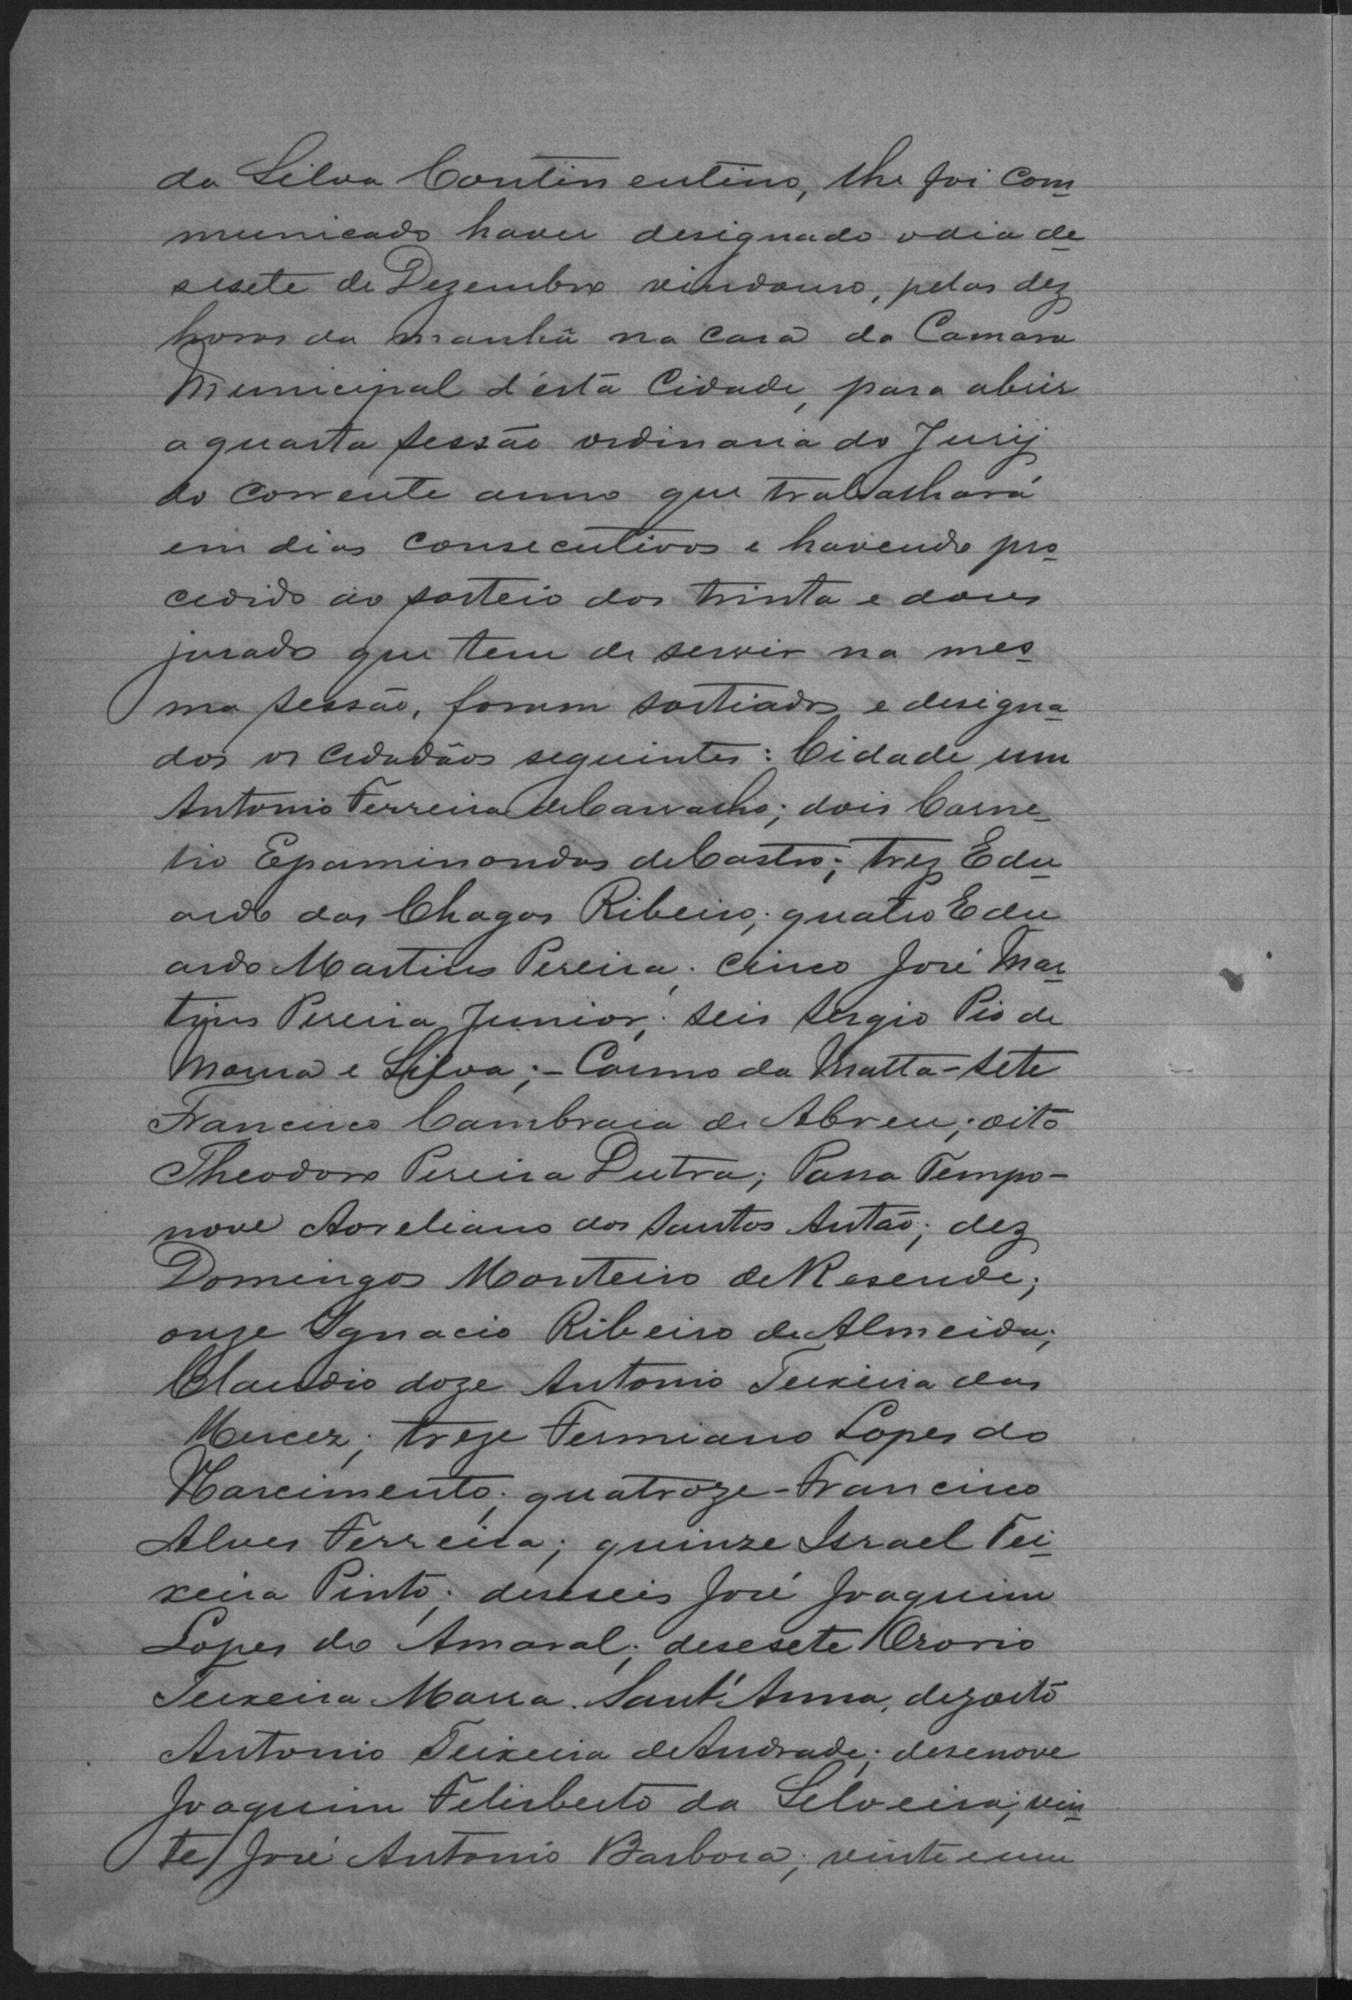 da Silva Continentino, lhe foi com
municado haver designado o dia de
sesete de Dezembro vindouro, pelas dez
horas da manhã na casa da Camara
Municipal d'ésta Cidade, para abrir
a quarta sessão ordinaria do Jury
do corrente anno que trabalhará
em dias consecutivos e havendo pro
cedido ao sorteio dos trinta e dous
jurado que tem de servir na mes
ma sessão, foram sortiados e designa
dos os cidadãos seguintes: Cidade um
Antonio Ferreira de Carvalho; dois Corne
lio Epaminondas de Castro; trez Edu
ardo das Chagas Ribeiro; quatro Edu
ardo Martins Pereira; cinco José Mar
tins Pereira Junior; seis Sergio Pio de
Moura e Silva;- Carmo da Matta-sete
Francisco Cambraia de Abreu; oito
Theodoro Pereira Dutra; Passa Tempo-
nove Aoreliano dos Santos Antão; dez
Domingos Monteiro de Resende;
onze Ignacio Ribeiro de Almeida;
Claudio doze Antonio Teixeira das
Mercez; treze Fermiano Lopes do
Nascimento; quatroze-Francisco
Alves Ferreira; quinze Israel Tei
xeira Pinto; deseseis José Joaquim
Lopes do Amaral; desesete Ozorio
Teixeira Marra. Sant'Anna, dezoito
Antonio Teixeira de Andrade; desenove
Joaquim Felisberto da Silveira; vin
te José Antonio Barbosa; vinte e um